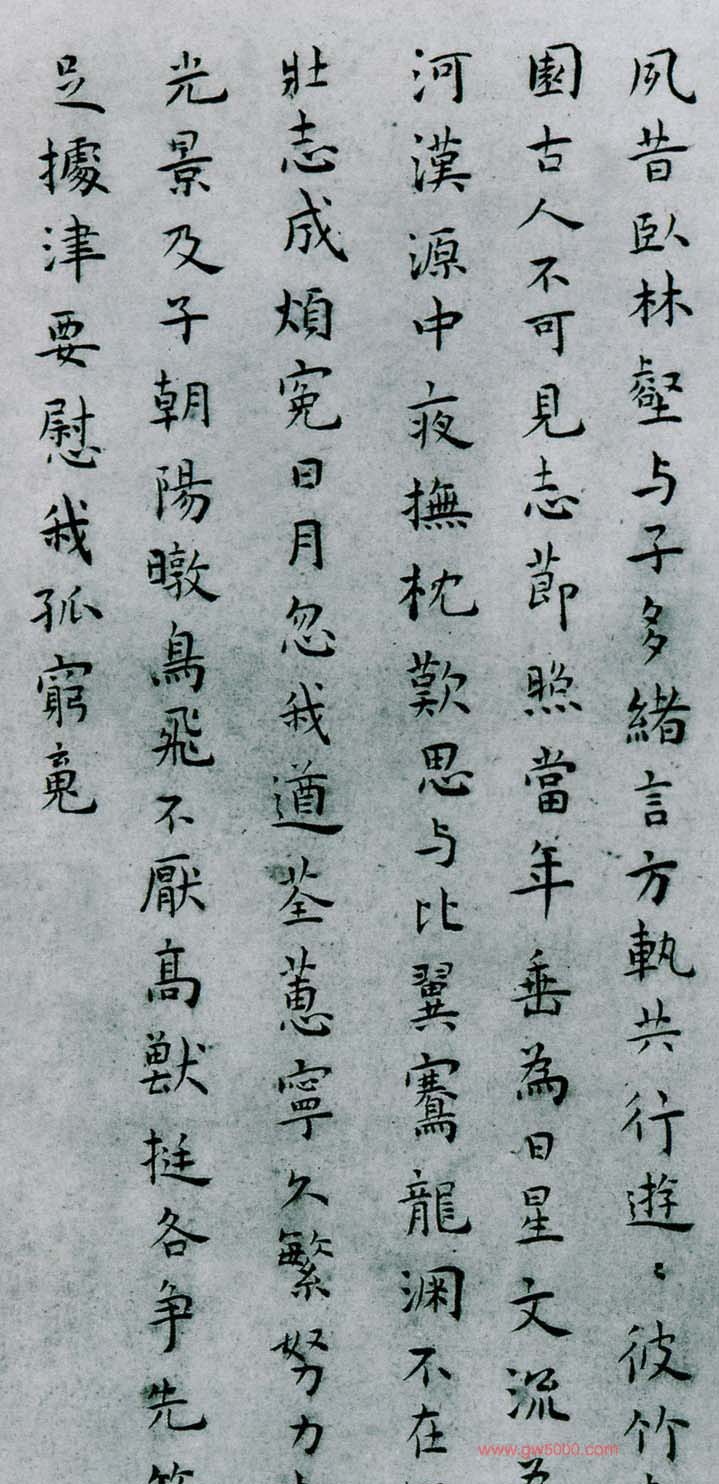 夙昔臥林壑与子多緒言方執共行遊〻彼竹
園古人不可見志莭照當年垂為日星文流
河漢源中夜撫枕歎思与比翼騫龍渊不在
壯志成煩冤日月忽我遒荃蕙寧久繁努力
光景及子朝陽暾鳥飛不厭高獸挺各争先
足據津要慰我孤窮䰟
www.gw5000.com